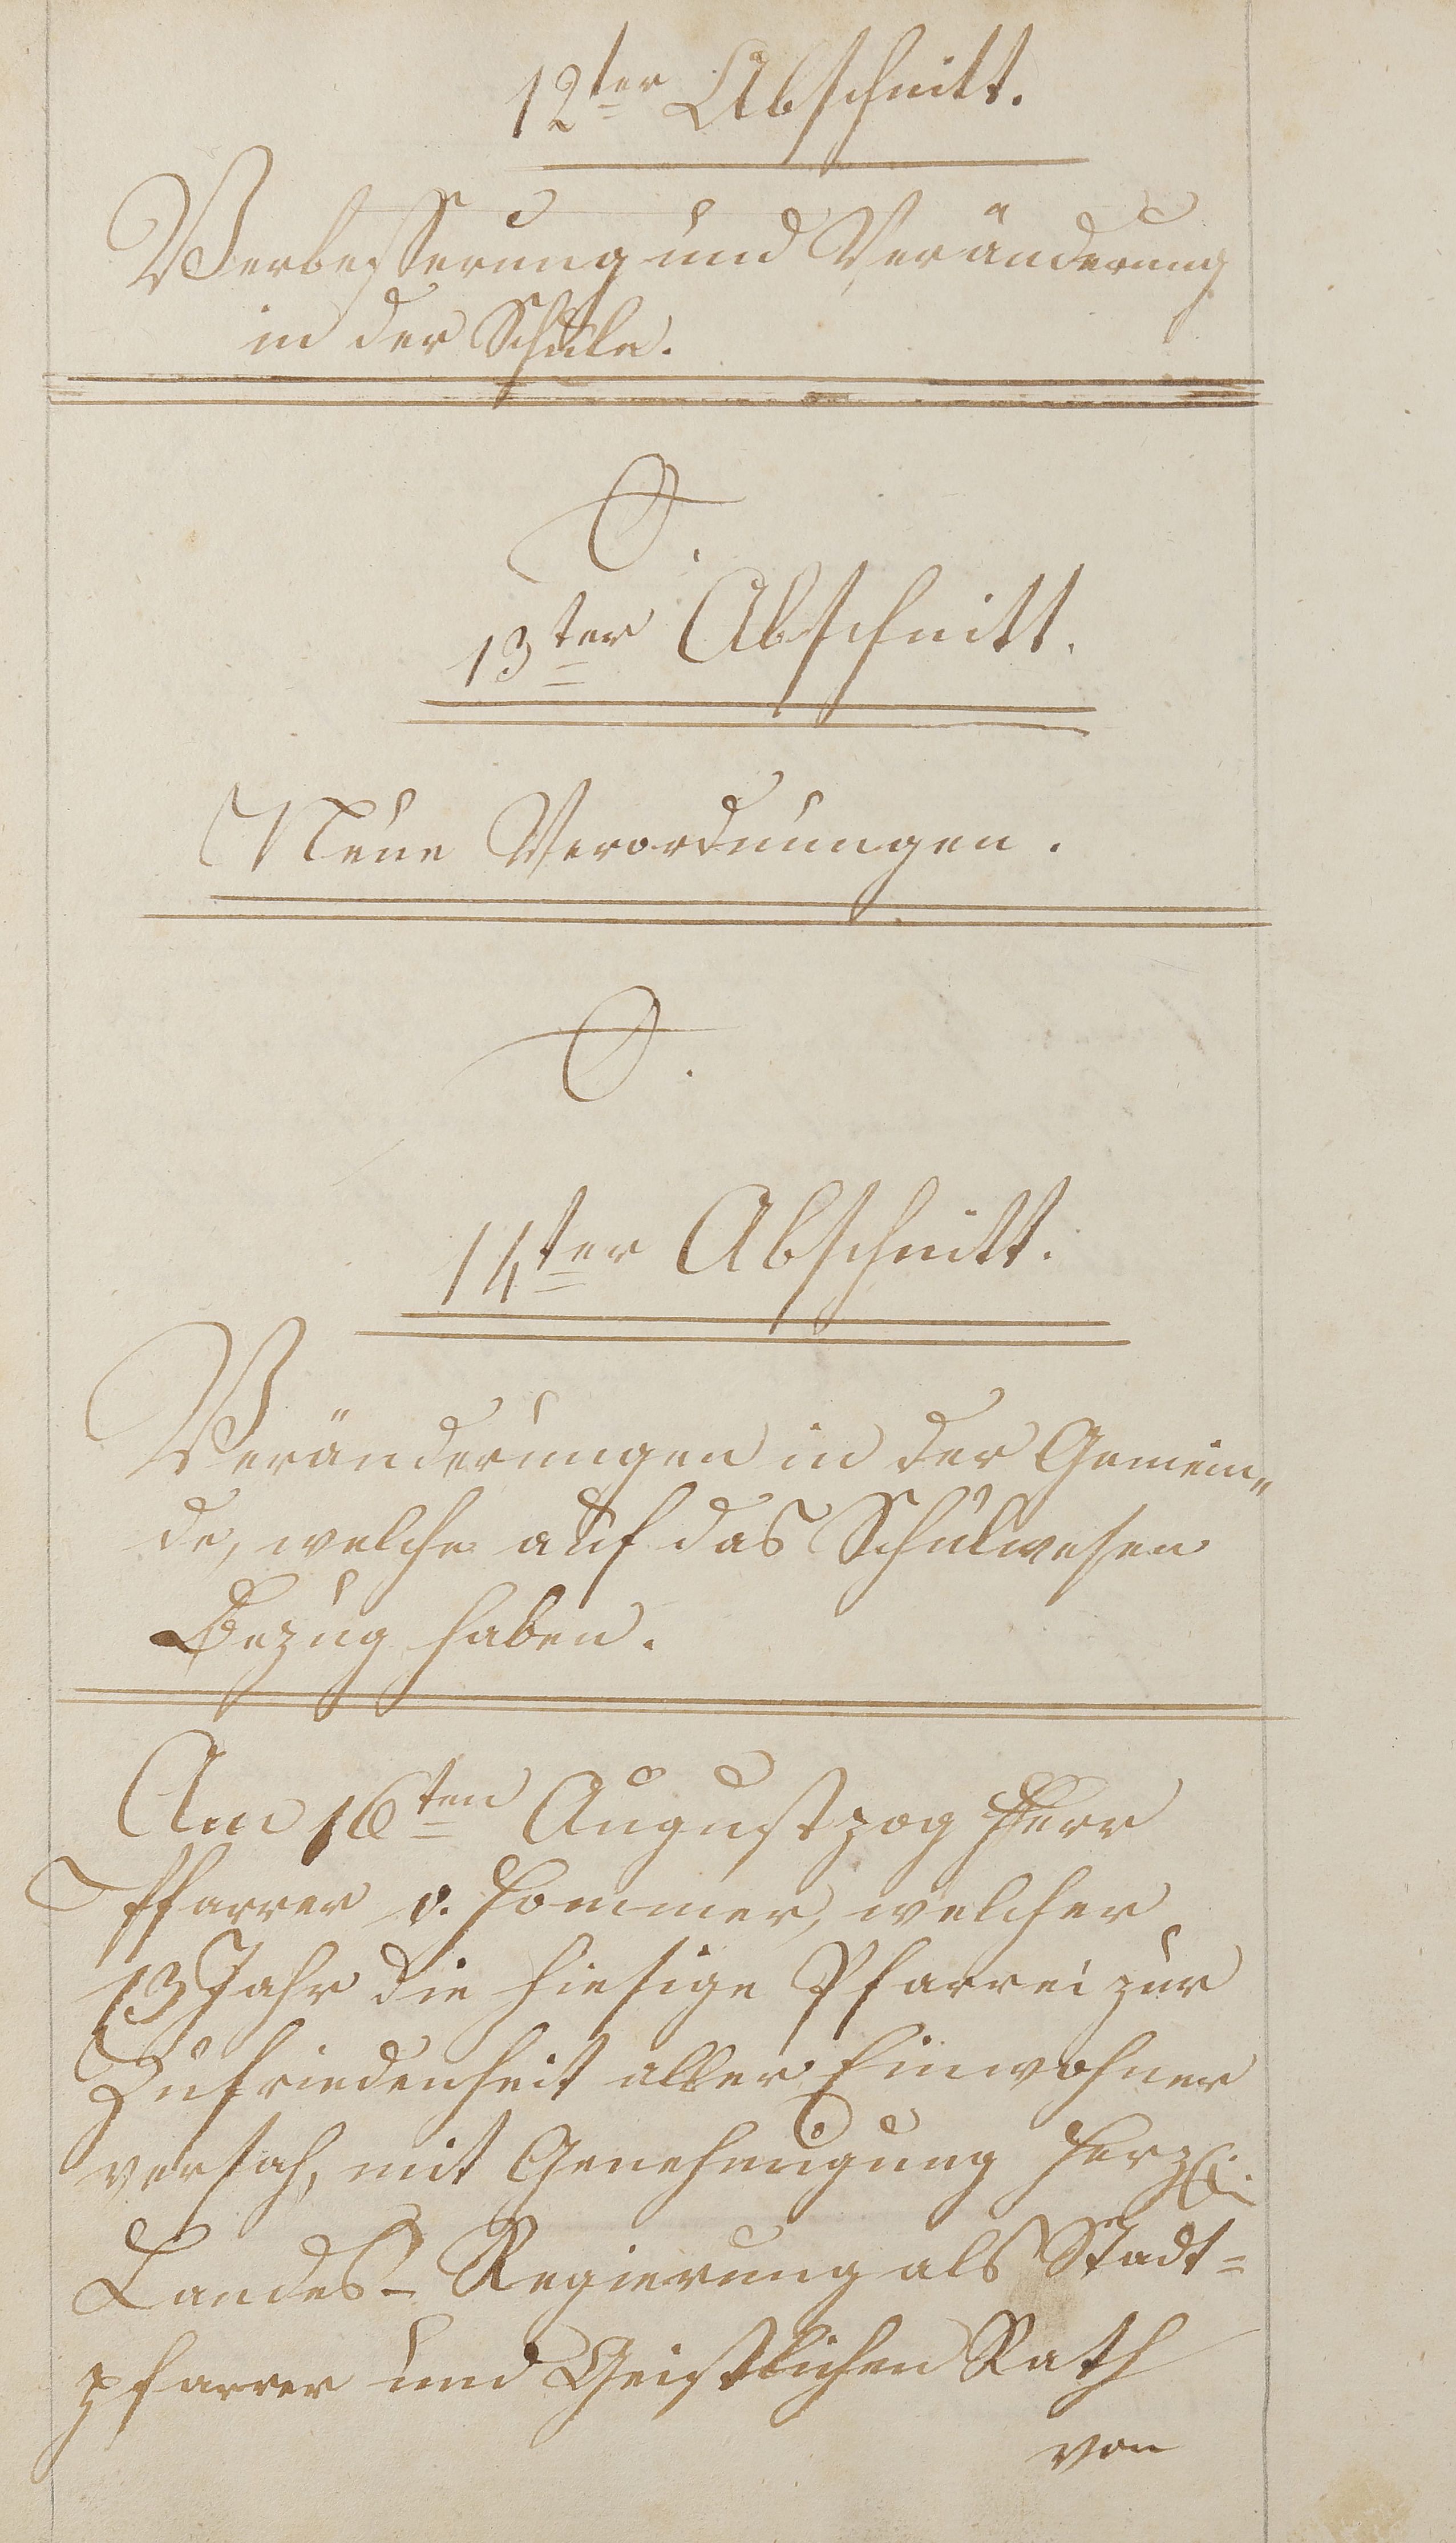 12ter Abschnitt.
Verbesserung und Veränderung
in der Schule.
0.
13ter Abschnitt.
Neue Verordnungen.
0.
14ter Abschnitt.
Veränderungen in der Gemein„
de, welche auf das Schulwesen
Bezug haben.
Am 16ten August zog Herr
Pfarrer v. Hommer, welcher
13 Jahr die hiesige Pfarrei zur
Zufriedenheit aller Einwohner
versah, mit Genehmigung Herzl.
Landes-Regierung als Stadt=
pfarrer und Geistlichen Rath
von